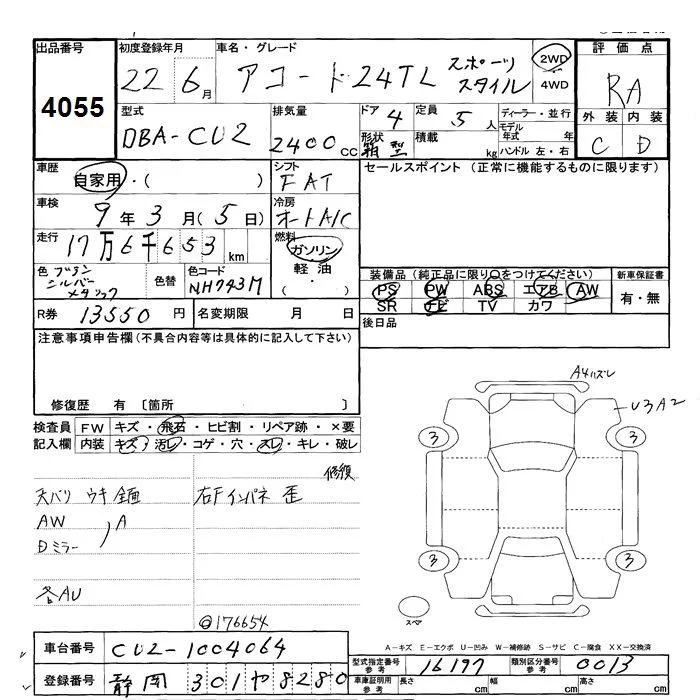 出品番号 初度登録年月 車名・グレード 評価点
4055 22 6月 アコード 24TL スポーツスタイル 2WD 4WD RA
外装 内装
C D
型式 排気量 ドア 定員 ディーラー・並行
DBA-CU2 2400cc 4 5人 モデル年式 年
形状 箱型 積載 kg ハンドル 左・右
車歴 シフト セールスポイント (正常に機能するものに限ります)
自家用・( ) FAT
車検 冷房
9年3月(5日) オートA/C
走行 燃料
17万6千653km ガソリン
軽油
・
( )
色 色替 色コード 装備品(純正品に限り○をつけてください) 新車保証書
シルバー メタリック NH743M PS PW ABS エアB AW 有・無
SR ナビ TV カワ
R券 13550円 名変期限 月 日 後日品
注意事項申告欄(不具合内容等は具体的に記入して下さい)
修復歴 有 〔箇所 〕
A4ハズレ
U3A2
検査員 FW キズ・飛石・ヒビ割・リペア跡・×要
記入欄 内装 キズ・汚レ・コゲ・穴・スレ・キレ・破レ
3 3
修復
天バリ ウキ 全面 右Fインパネ 歪
AW A
Dミラー
3 3
各AU
@176654
スペア
A-キズ E-エクボ U-凹み W-補修跡 S-サビ C-腐食 XX-交換済
車台番号 CU2-1004064
登録番号 静岡 301 や 8280
型式指定番号 参考 16197 類別区分番号 参考 0013
車庫証明用 参考 長さ cm 幅 cm 高さ cm